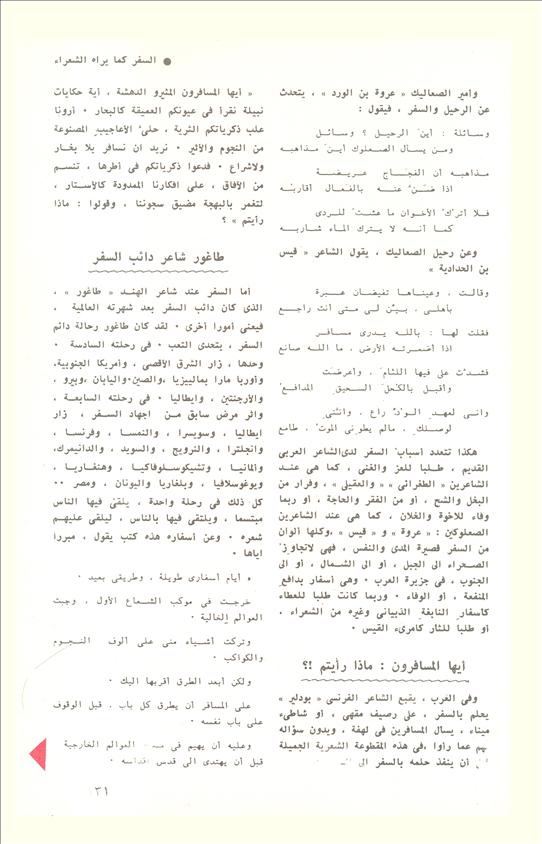 ● السفر كما يراه الشعراء
وأمير الصعاليك « عروة بن الورد » ، يتحدث
عن الرحيل والسفر ، فيقول :
وسائلة : أين الرحيل ؟ وسائل
ومن يسأل الصعلوك أين مذاهبه
مذاهبه أن الفجاج عريضة
اذا ضن عنه بالفعال أقاربه
فلا أترك الأخوان ما عشت للردى
كما أنه لا يترك الماء شاربه
وعن رحيل الصعاليك ، يقول الشاعر « قيس
بن الحدادية »
وقالت ، وعيناها تفيضان عبرة
بأهلى ، بين لى متى أنت راجع
فقلت لها : بالله يدرى مسافر
اذا أضمرته الأرض ، ما الله صانع
فشدت على فيها اللثام ، وأعرضت
وأقبل بالكحل السحيق المدامع
وانى لعهد الود راع ، وانثنى
لوصلك ، مالم يطونى الموت طامع
هكذا تتعدد أسباب السفر لدى الشاعر العربى
القديم ، طلبا للعز والغنى ، كما هى عند
الشاعرين « الطغرائى » « والعقيلى » ، وفرار من
البخل والشح ، أو من الفقر والحاجة ، أو ربما
وفاء للاخوة والخلان ، كما هى عند الشاعرين
الصعلوكين : « عروة » و « قيس » ،وكلها ألوان
من السفر قصيرة المدى والنفس ، فهى لاتجاوز
الصحراء الى الجبل ، أو الى الشمال ، أو الى
الجنوب ، فى جزيرة العرب ٠ وهى أسفار بدافع
المنفعة ، أو الوفاء ٠ وربما كانت طلبا للعطاء
كأسفار النابغة الذبيانى وغيره من الشعراء ،
أو طلبا للثأر كامرىء القيس ٠
أيها المسافرون : ماذا رأيتم ؟!
وفى الغرب ، يقبع الشاعر الفرنسى « بودلير »
يحلم بالسفر ، على رصيف مقهى ، أو شاطىء
ميناء ، يسأل المسافرين فى لهفة ، ويدون سؤاله
لهم عما رأوا ،فى هذه المقطوعة الشعرية الجميلة
أن ينفذ حلمه بالسفر الى
« أيها المسافرون المثيرو الدهشة ، أية حكايات
نبيلة نقرأ فى عيونكم العميقة كالبحار ٠ أرونا
علب ذكرياتكم الثرية ، حلى الأعاجيب المصنوعة
من النجوم والأثير ٠ نريد أن نسافر بلا بخار
ولاشراع ٠ فدعوا ذكرياتكم فى أطرها ، تنسم
من الآفاق ، على افكارنا الممدودة كالأستار ،
لتغمر بالبهجة مضيق سجوننا ، وقولوا : ماذا
رأيتم » ؟
طاغور شاعر دائب السفر
أما السفر عند شاعر الهند « طاغور » ،
الذى كان دائب السفر بعد شهرته العالمية ،
فيعنى أمورا أخرى ٠ لقد كان طاغور رحالة دائم
السفر ، يتحدى التعب ٠ فى رحلته السادسة
وحدها ، زار الشرق الأقصى ، وأمريكا الجنوبية،
وأوربا مارا بماليزيا ،والصين،واليابان ،وبيرو ،
والأرجنتين ، وايطاليا ٠ فى رحلته السابعة ،
واثر مرض سابق من اجهاد السفر ، زار
ايطاليا ، وسويسرا ، والنمسا ، وفرنسا ،
وانجلترا ، والنرويج ، والسويد ، والدانيمرك،
والمانيا ، وتشيكوسلوفاكيا ، وهنغاريا ،
ويوغوسلافيا ، وبلغاريا واليونان ، ومصر ٠٠
كل ذلك فى رحلة واحدة ، يلقى فيها الناس
مبتسما ، ويلتقى فيها بالناس ، ليلقى عليهم
شعره ٠ وعن أسفاره هذه كتب يقول ، مبررا
اياها ٠
« أيام أسفارى طويلة ، وطريقى بعيد ٠
خرجت فى موكب الشعاع الأول ، وجبت
العوالم الخالية ٠
وتركت أشياء منى على ألوف النجوم
والكواكب ٠
ولكن أبعد الطرق أقربها اليك ٠
على المسافر أن يطرق كل باب ، قبل الوقوف
على باب نفسه ٠
وعليه أن يهيم فى العوالم الخارجية
قبل أن يهتدى الى قدس أقداسه ٠
٣١